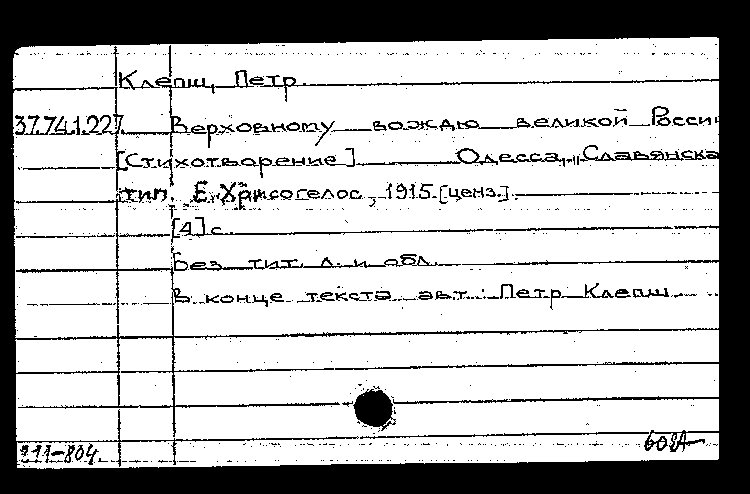 Клепш, Петр.
37.74.1.227. Верховному вождю великой России
[Стихотворение]. Одесса, "Славянская"
тип. Е. Хрисогелос, 1915. [ценз.].
[4] с.
Без тит. л. и обл.
В конце текста авт.: Петр Клепш.
211-804.